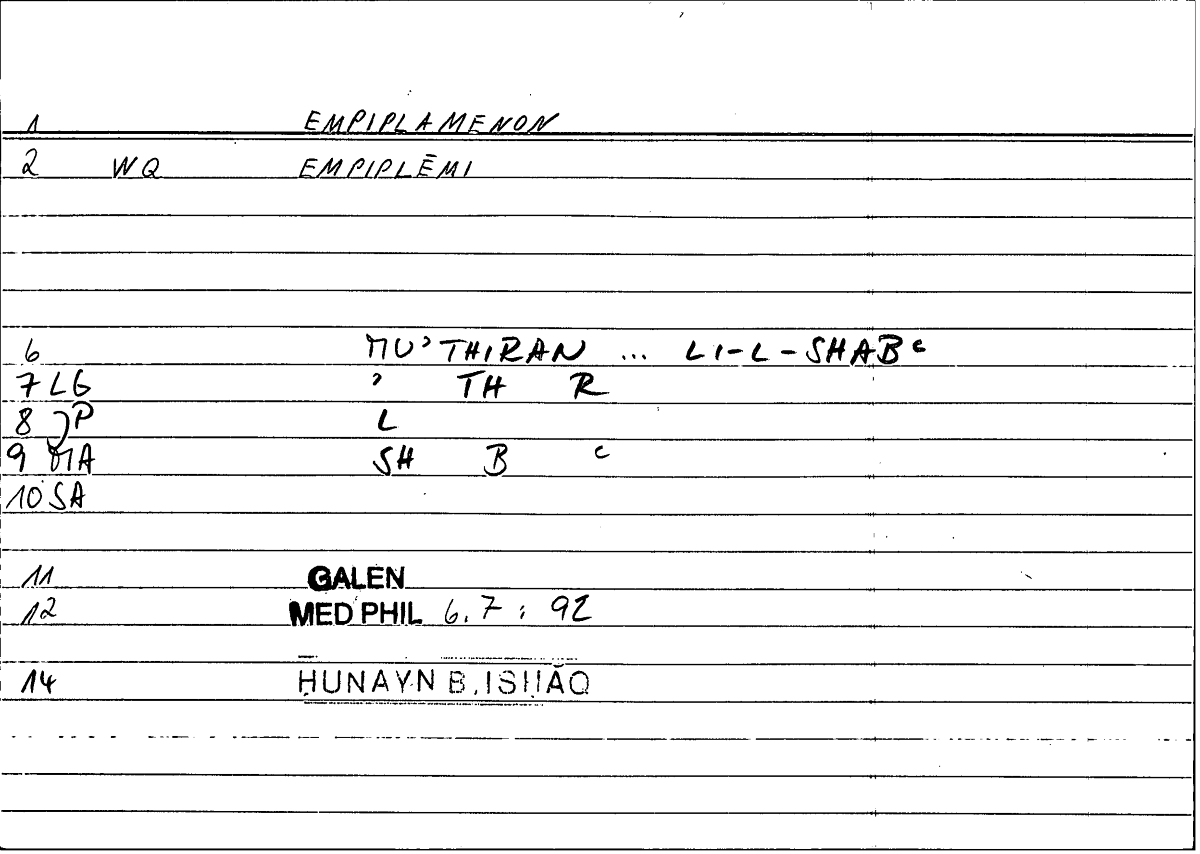 1 EMPIPLAMENON
2 WQ EMPIPLĒMI
6 MU'THIRAN ... LI-L-SHABᶜ
7 LG ' TH R
8 JP L
9 MA SH B ᶜ
10 SA
11 GALEN
12 MED PHIL 6.7 : 92
14 ḤUNAYN B. ISḤĀQ